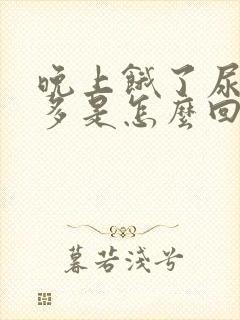 晚上餓了尿
多是怎麼回
暮若淺兮